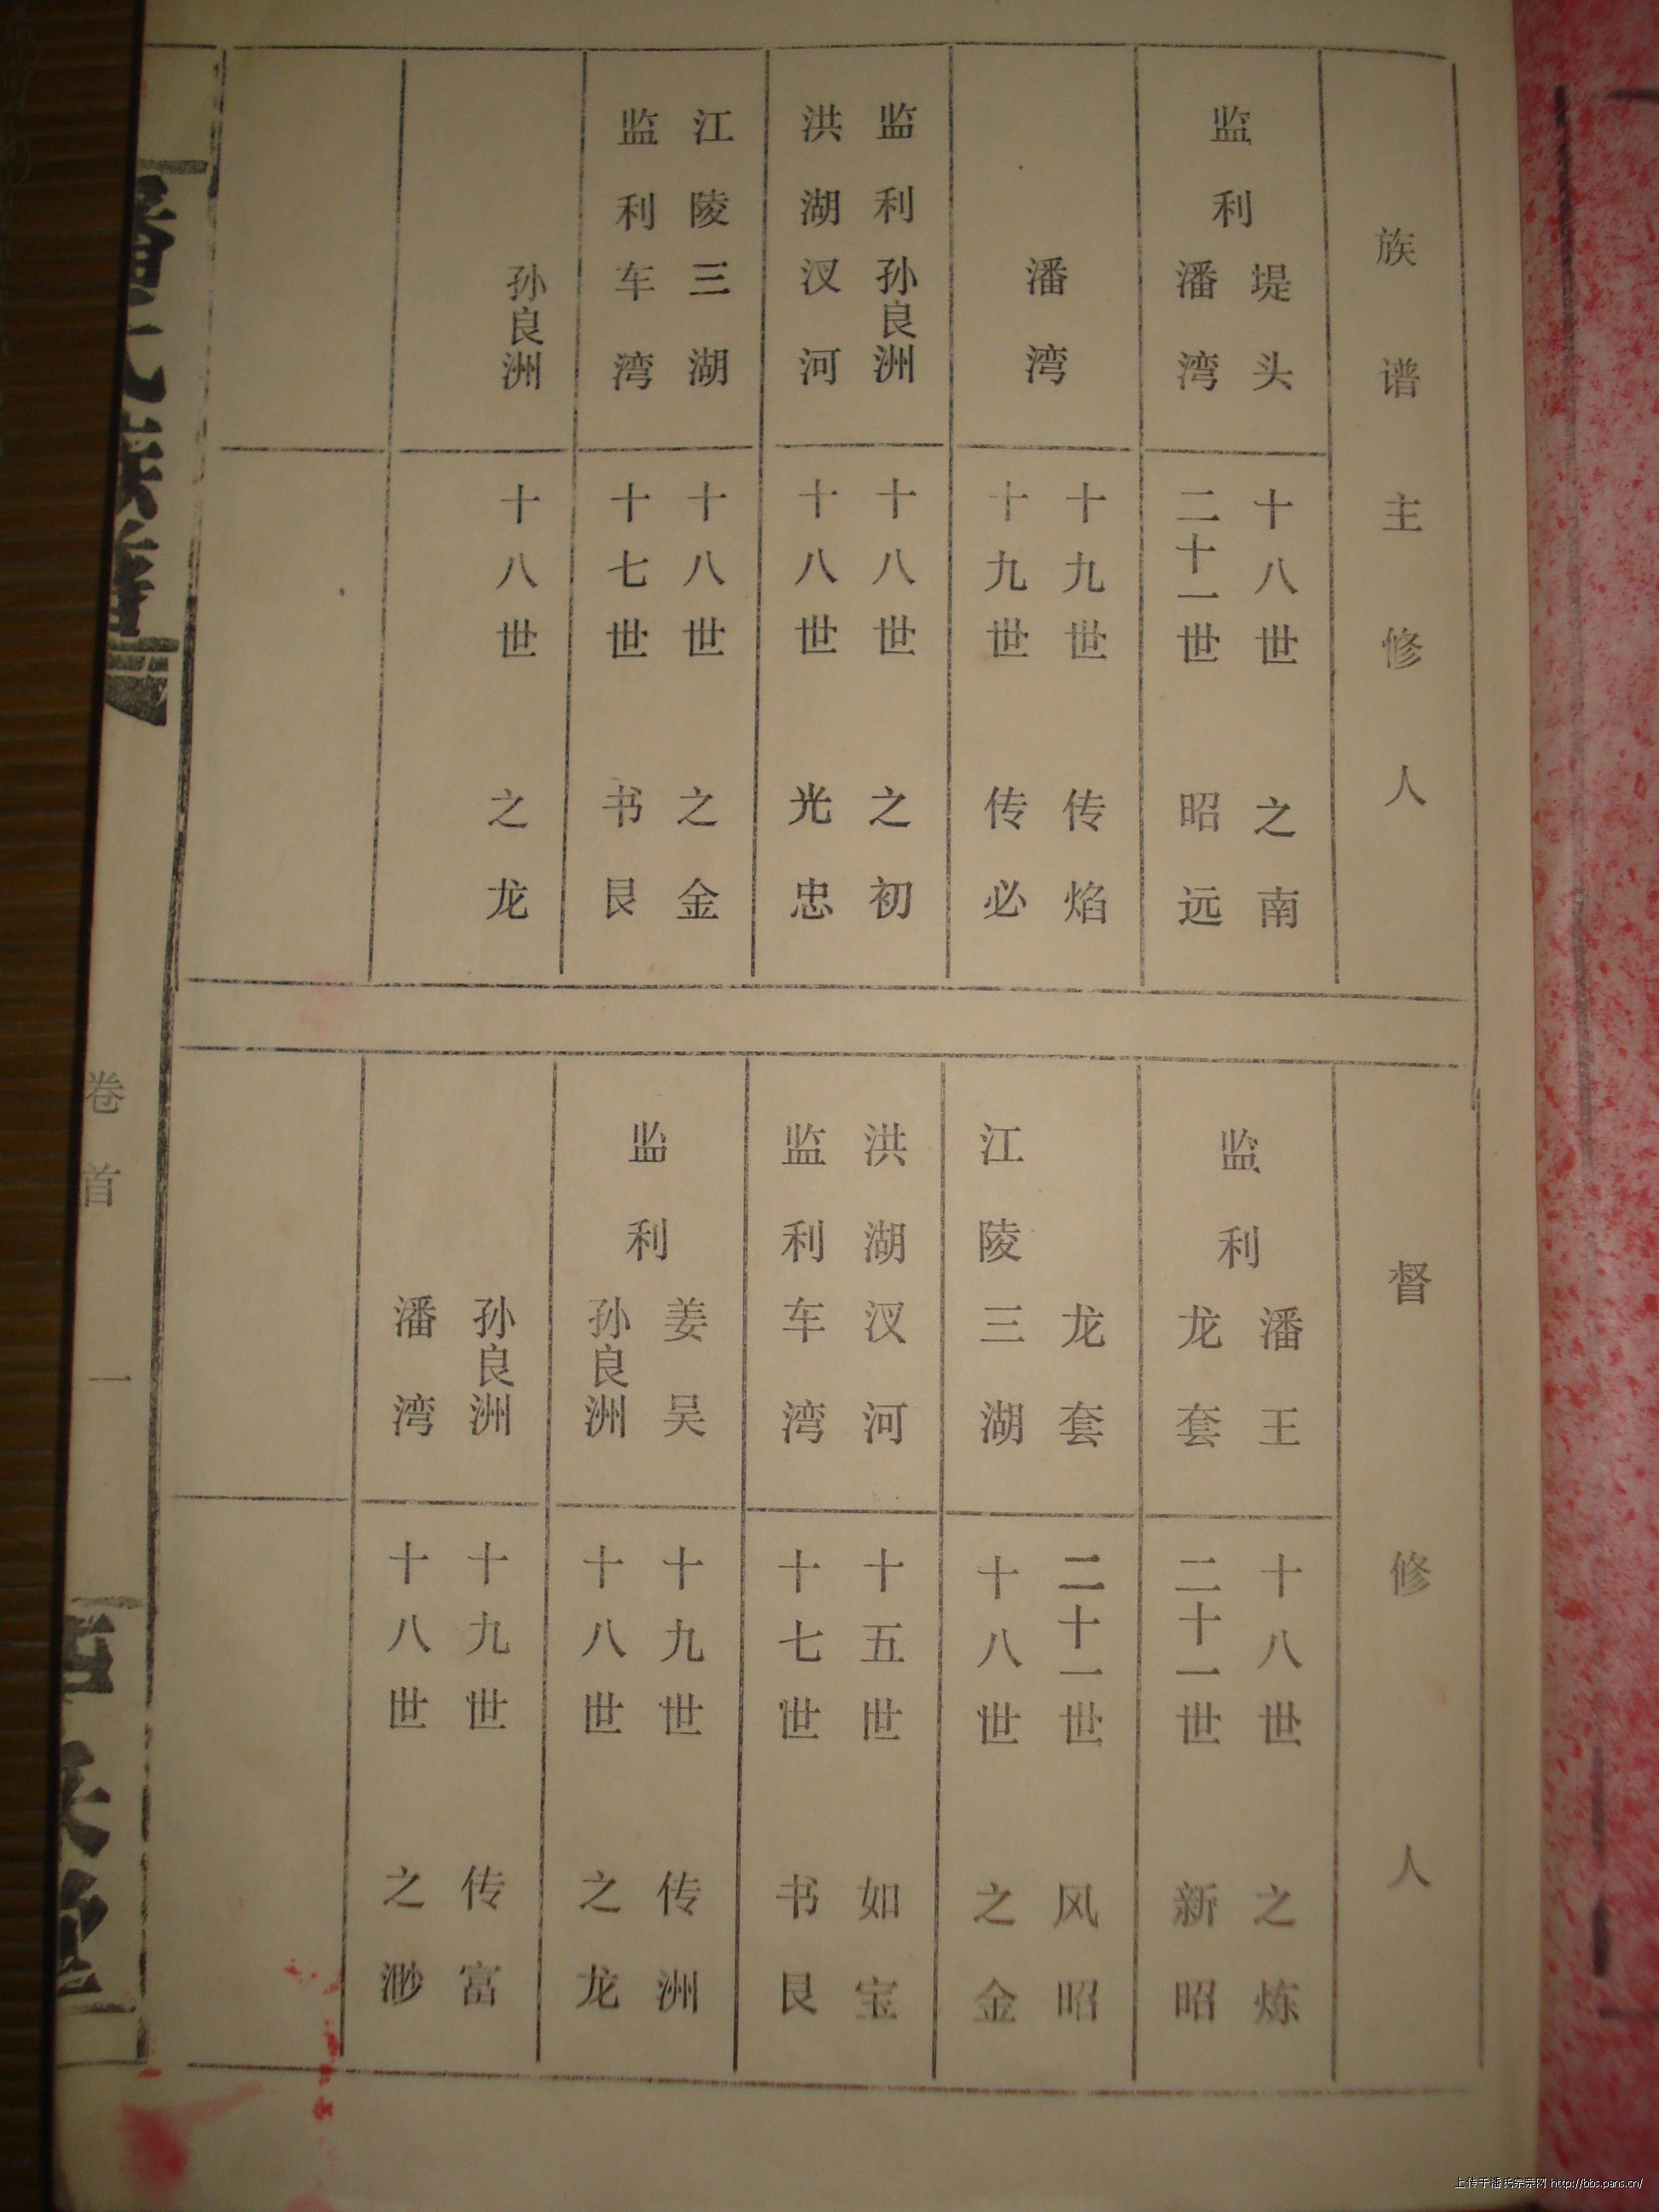 族谱主修人
监利
堤头 十八世 之南
潘湾 二十一世 昭远
潘湾
十九世 传焰
十九世 传必
监利孙良洲 十八世 之初
洪湖汊河 十八世 光忠
江陵三湖 十八世 之金
监利车湾 十七世 书艮
孙良洲 十八世 之龙
督修人
监利
潘王 十八世 之炼
龙套 二十一世 新昭
龙套 二十一世 风昭
江陵三湖 十八世 之金
洪湖汊河 十五世 如宝
监利车湾 十七世 书艮
监利
姜吴 十九世 传洲
孙良洲 十八世 之龙
孙良洲 十九世 传富
潘湾 十八世 之渺
潘氏族谱
卷首
一
上传于潘氏宗亲网 http://bbs.pans.cn/